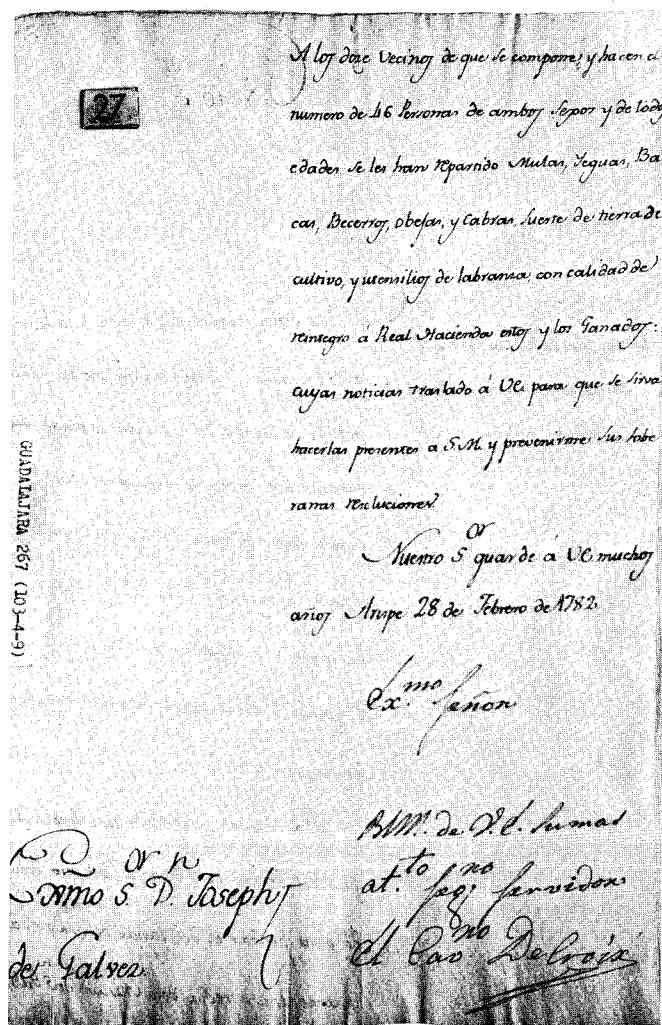 27
A los doze Vecinos de que se compone, y hacen el
numero de 46 Personas de ambos sexos y de todas
edades se les han repartido Mulas, Yeguas, Ba
cas, Becerros, obejas, y Cabras, suerte de tierra de
cultivo, y utensilios de labranza, con calidad de
reintegro á Real Hacienda estos y los Ganados:
cuyas noticias traslado á VE. para que se sirva
hacerlas presentes a S.M. y prevenirme sus sobe
ranas resoluciones.
Nuestro S.or guarde á VE. muchos
años Arispe 28 de Febrero de 1782.
Ex.mo Señor
BLM. de V.E. su mas
at.to seg.no servidor
El Cav.ro De Croix
Exmo S.or D.n Joseph
de Galvez
GUADALAJARA 267 (103-4-9)